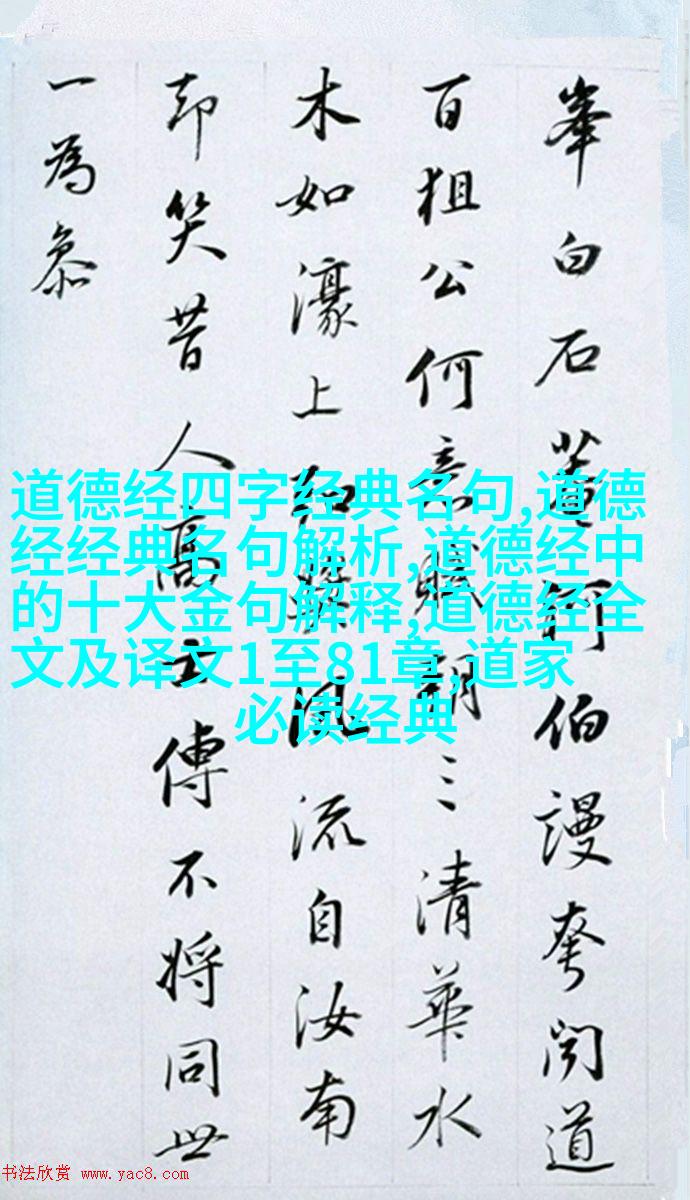 峯白石伯謾夸聞道
百狙公何意賦朝三清華水
木如濠上知樂風流自汝南
却笑昔人高士傳不將同世
一為叅
道德经四字经典名句,道德
经经典名句解析,道德经中
的十大金句解释,道德经全
文及译文1至81章,道家
必读经典
书法欣赏 www.yac8.com